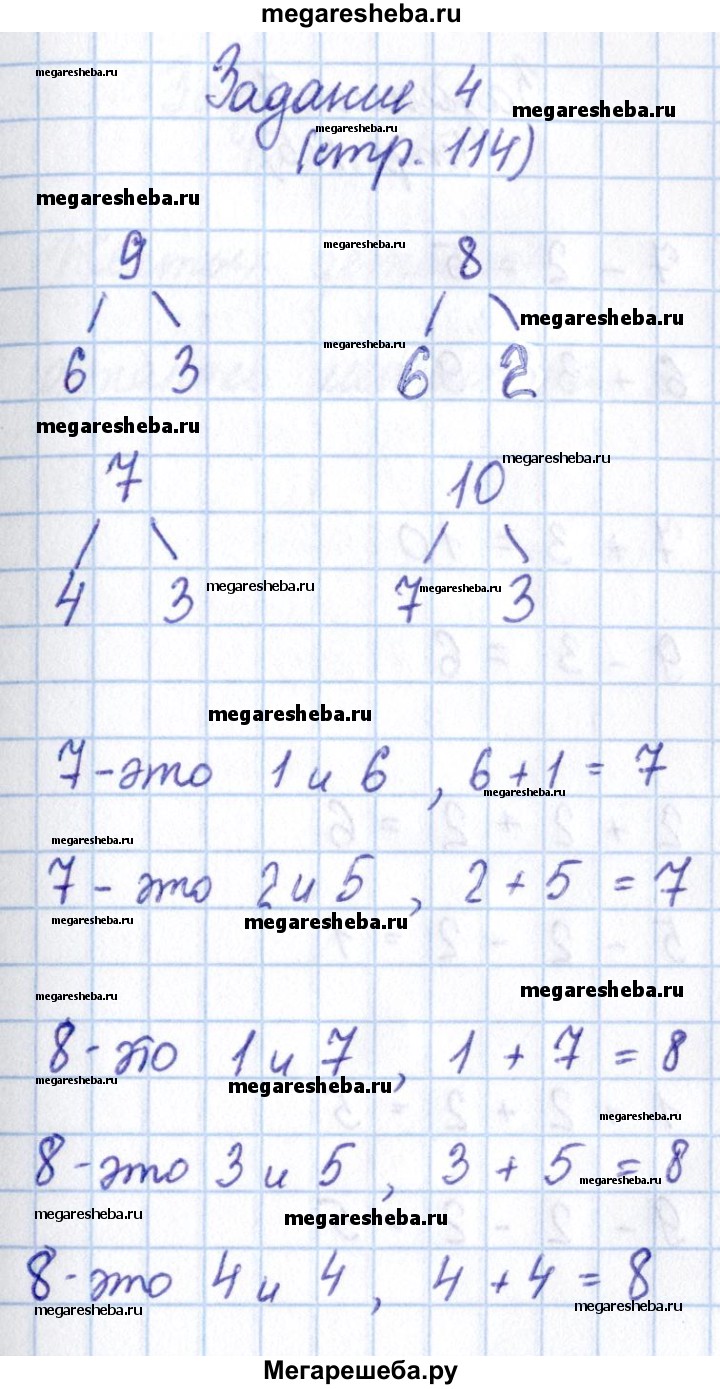 megaresheba.ru
megaresheba.ru
Задание 4
megaresheba.ru
megaresheba.ru
(стр. 114)
megaresheba.ru
9 megaresheba.ru 8
megaresheba.ru
megaresheba.ru
6 3 6 2
megaresheba.ru
7 10 megaresheba.ru
4 3 megaresheba.ru 7 megaresheba.ru 3
megaresheba.ru
7 - это 1 и 6 , 6 + 1 = 7
megaresheba.ru
megaresheba.ru
7 - это 2 и 5 , 2 + 5 = 7
megaresheba.ru megaresheba.ru
megaresheba.ru megaresheba.ru
8 - это 1 и 7 , 1 + 7 = 8
megaresheba.ru megaresheba.ru
megaresheba.ru
8 - это 3 и 5 , 3 + 5 = 8
megaresheba.ru
megaresheba.ru megaresheba.ru
8 - это 4 и 4 , 4 + 4 = 8
megaresheba.ru megaresheba.ru
Мегарешеба.ру